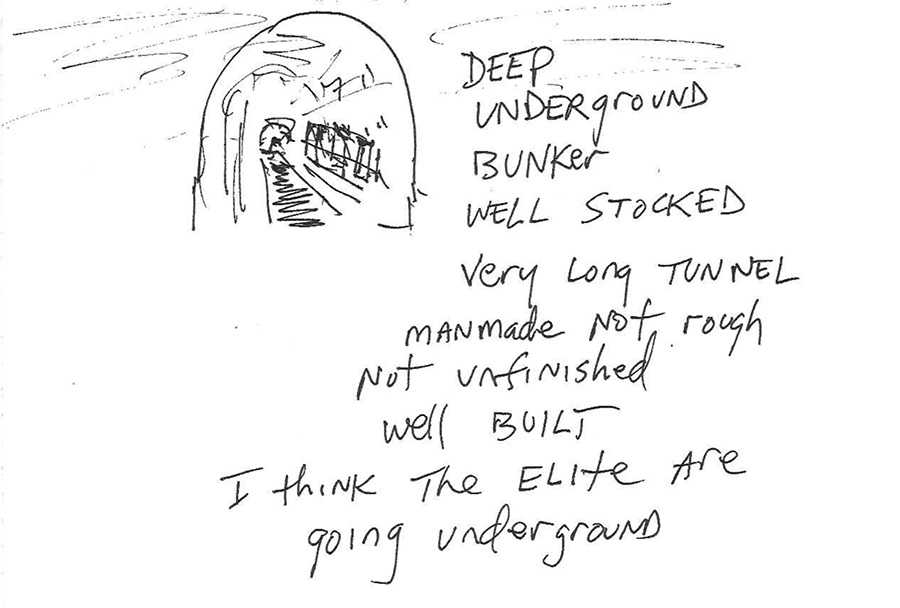 DEEP
UNDERgROUND
BUNKer
WELL STOCKED
Very Long TUNNEL
MANmade Not rough
Not unfinished
well BUILT
I thINK The ELIte Are
going undergrounD